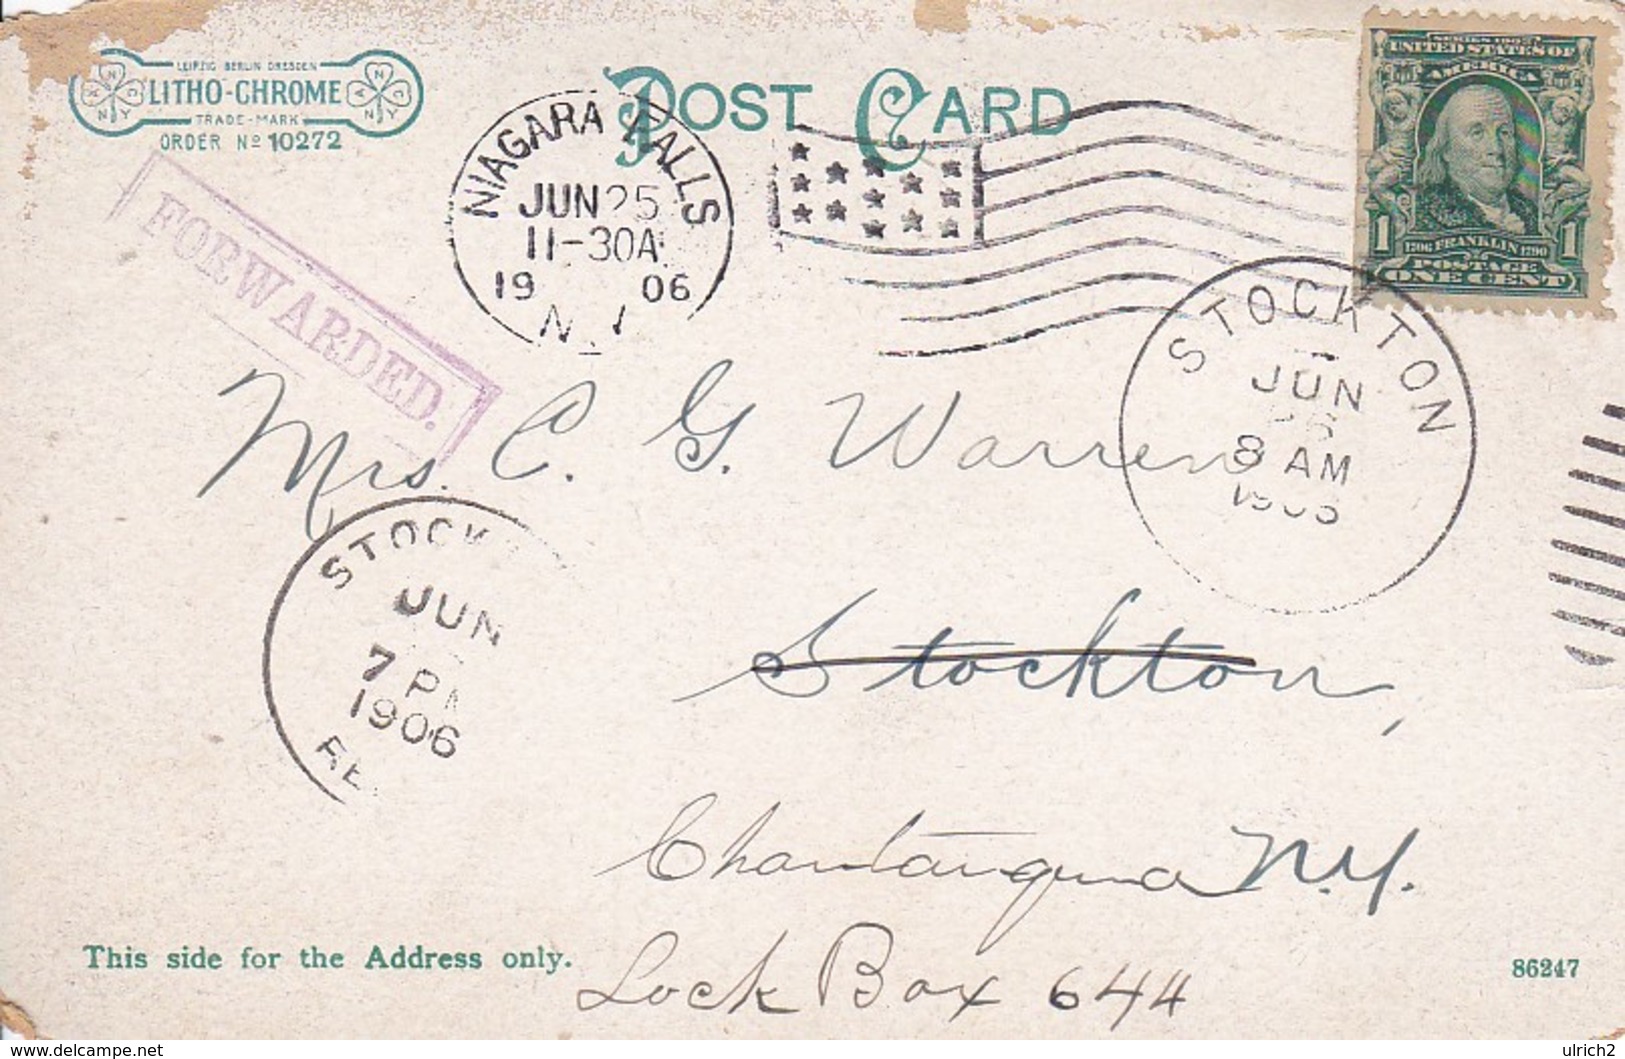 LEIPZIG BERLIN DRESDEN
LITHO-CHROME
TRADE-MARK
ORDER Nº 10272
POST CARD
SERIES 1902
UNITED STATES OF
AMERICA
1 1706 FRANKLIN 1790 1
POSTAGE
ONE CENT
FORWARDED.
NIAGARA FALLS
JUN 25
11-30A
19 06
N.
STOCKTON
JUN
8 AM
Mrs. C. G. Warren
STOCK
JUN
7 PM
1906
Stockton,
Chautauqua N.Y.
Lock Box 644
This side for the Address only.
86247
delcampe.net
ulrich2